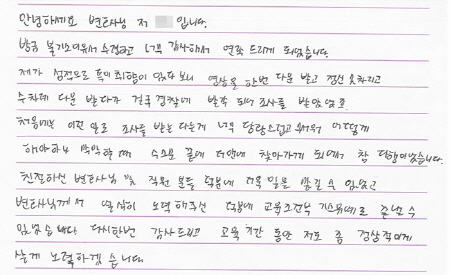 안녕하세요 변호사님 저 입니다.
방금 불기소이유서 수령하고 너무 감사해서 연락 드리게 되었습니다.
제가 성적으로 특이 취향이 있다 보니 영상을 한번 다운 받고 정신 못차리고
수차례 다운 받다가 결국 경찰에 발각 되어 조사를 받았었죠
처음에는 이런 일로 조사를 받는다는게 너무 당황스럽고 무서워 어떻게
해야하나 막막하던 때 수소문 끝에 찾아가게 되어서 참 다행이었습니다.
친절하신 변호사님 및 직원 분들 덕분에 믿고 맡길 수 있었고
변호사님께서 열심히 노력 해주신 덕분에 교육조건부 기소유예로 끝낼 수
있었습니다 다시한번 감사드리고 교육 기간 동안 저도 좀 정상적이게
살게 노력하겠습니다.